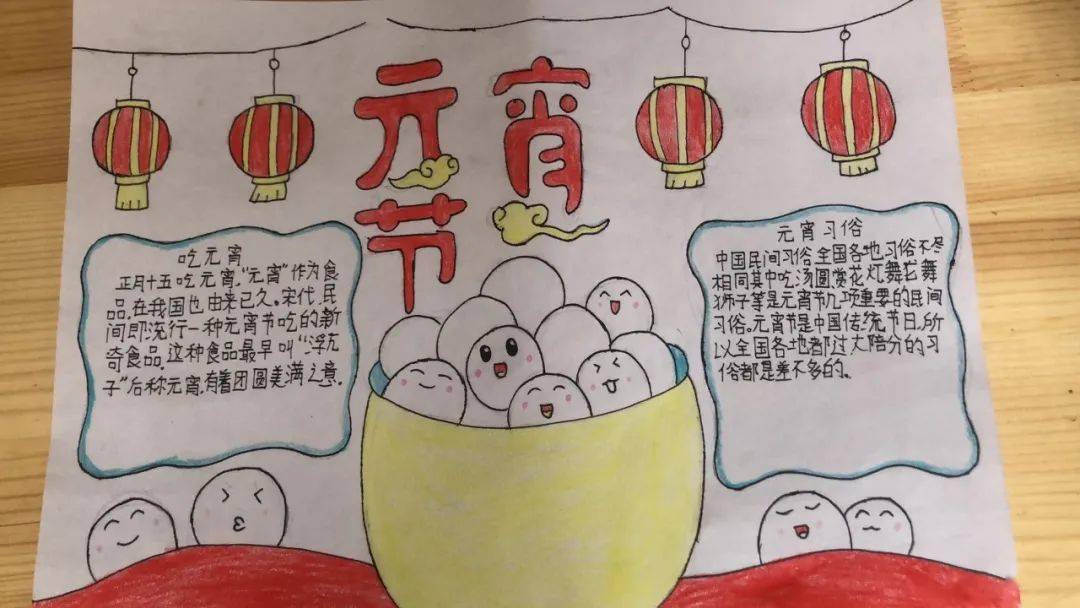 元宵
节
吃元宵
正月十五吃元宵,“元宵”作为食
品,在我国也由来已久。宋代,民
间即流行一种元宵节吃的新
奇食品,这种食品最早叫“浮元
子”后称元宵,有着团圆美满之意.
元宵习俗
中国民间习俗,全国各地习俗不尽
相同其中吃汤圆赏花灯舞龙舞
狮子等是元宵节几项重要的民间
习俗。元宵节是中国传统节日,所
以全国各地都过大陪分的习
俗都是差不多的。